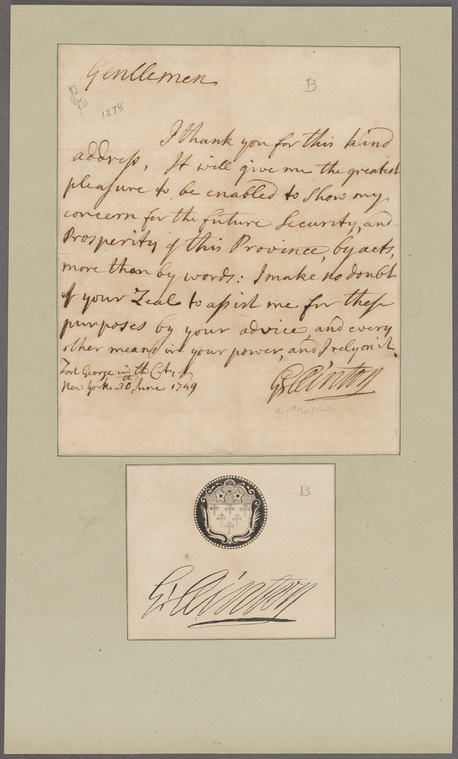 Gentlemen
B
1278
I thank you for this kind
address, It will give me the greatest
pleasure to be enabled to show my
concern for the future Security, and
Prosperity of this Province, by acts,
more than by words: I make no doubt
of your Zeal to assist me for these
purposes by your advice and every
other means in your power, and I rely on it.
Fort George in the City of
New York 30th June 1749
G: Clinton
B
G: Clinton